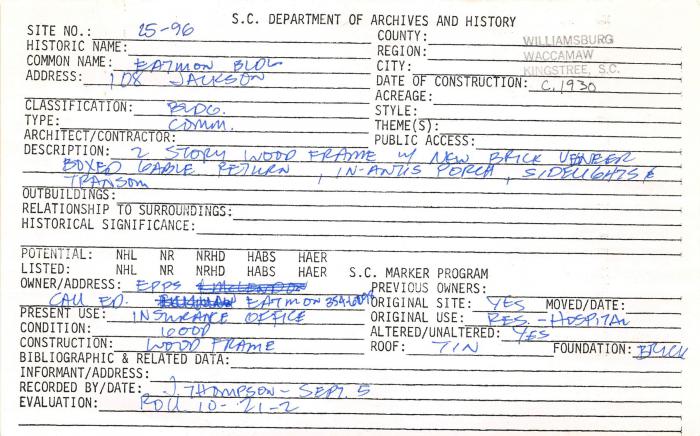 S.C. DEPARTMENT OF ARCHIVES AND HISTORY
SITE NO.: 25-96
COUNTY: WILLIAMSBURG
HISTORIC NAME:
REGION: WACCAMAW
COMMON NAME: EATMON BLDG
CITY: KINGSTREE, S.C.
ADDRESS: 108 JACKSON
DATE OF CONSTRUCTION: C. 1930
ACREAGE:
CLASSIFICATION: BLDG.
STYLE:
TYPE: COMM.
THEME(S):
ARCHITECT/CONTRACTOR:
PUBLIC ACCESS:
DESCRIPTION: 2 STORY WOOD FRAME W/ NEW BRICK VENEER
BOXED GABLE RETURN, IN-ANTIS PORCH, SIDELIGHTS &
TRANSOM
OUTBUILDINGS:
RELATIONSHIP TO SURROUNDINGS:
HISTORICAL SIGNIFICANCE:
POTENTIAL: NHL NR NRHD HABS HAER
LISTED: NHL NR NRHD HABS HAER S.C. MARKER PROGRAM
OWNER/ADDRESS: EPPS
PREVIOUS OWNERS:
CALL ED. EATMON
ORIGINAL SITE: YES MOVED/DATE:
PRESENT USE: INSURANCE OFFICE
ORIGINAL USE: RES. - HOSPITAL
CONDITION: GOOD
ALTERED/UNALTERED: YES
CONSTRUCTION: WOOD FRAME
ROOF: TIN FOUNDATION: BRICK
BIBLIOGRAPHIC & RELATED DATA:
INFORMANT/ADDRESS:
RECORDED BY/DATE: J THOMPSON - SEPT. 5
EVALUATION: ROLL 10-21-2